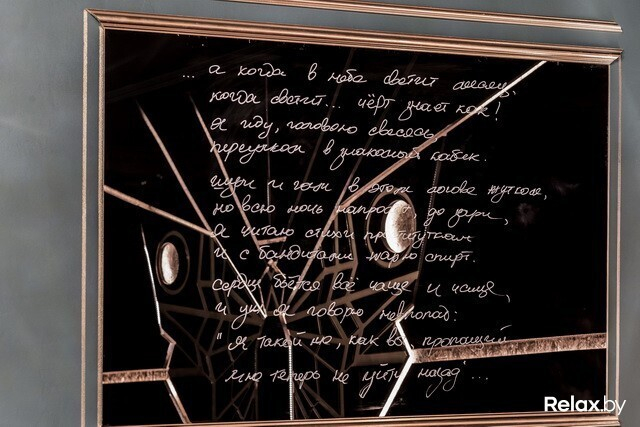 ... а когда в небе светит месяц,
когда светит... чёрт знает как!
Я иду, головою свесясь,
переулком в знакомый кабак.
шум и гам в этом логове жутком,
но всю ночь напролёт, до зари,
я читаю стихи проституткам
и с бандитами жарю спирт.
сердце бьётся всё чаще и чаще,
и уж я говорю невпопад:
"я такой же, как вы, пропащий
мне теперь не уйти назад"...
Relax.by